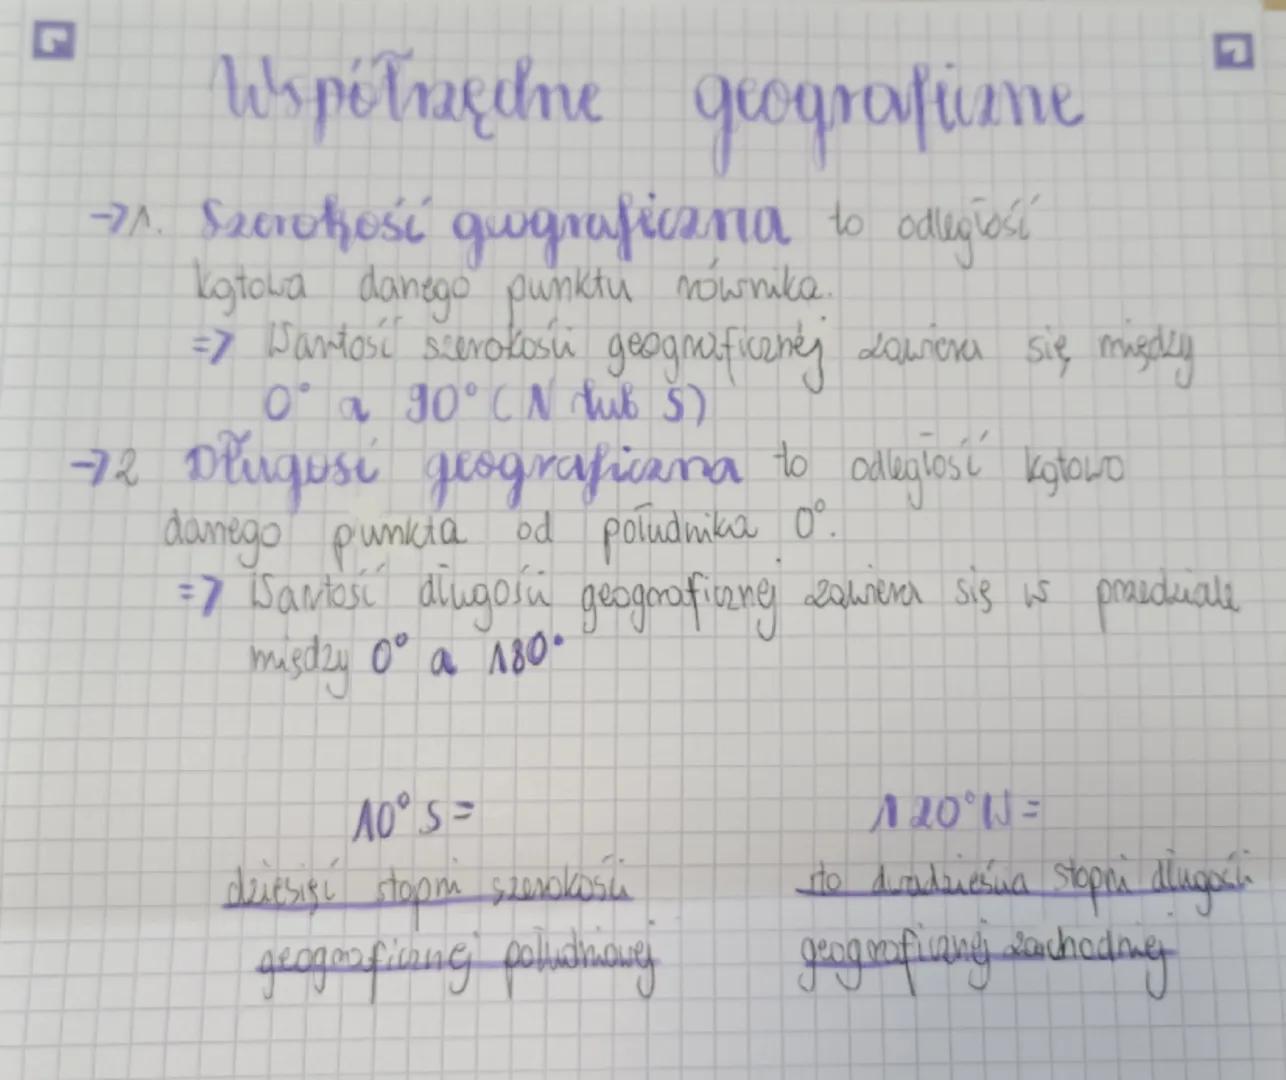 Współrzędne geograficzne
→1. Szerokość geograficzna to odległość
kątowa danego punktu równika.
=> Wartość szerokości geograficznej zawiera się między
0° a 90° (N lub S)
→2 Długość geograficzna to odległość kątowo
danego punkta od południka 0°.
=> Wartość długości geograficznej zawiera się w przedziale
między 0° a 180°
10° S =
dziesięć stopni szerokości
geograficznej południowej
120° W =
sto dwadzieścia stopni długości
geograficznej zachodniej